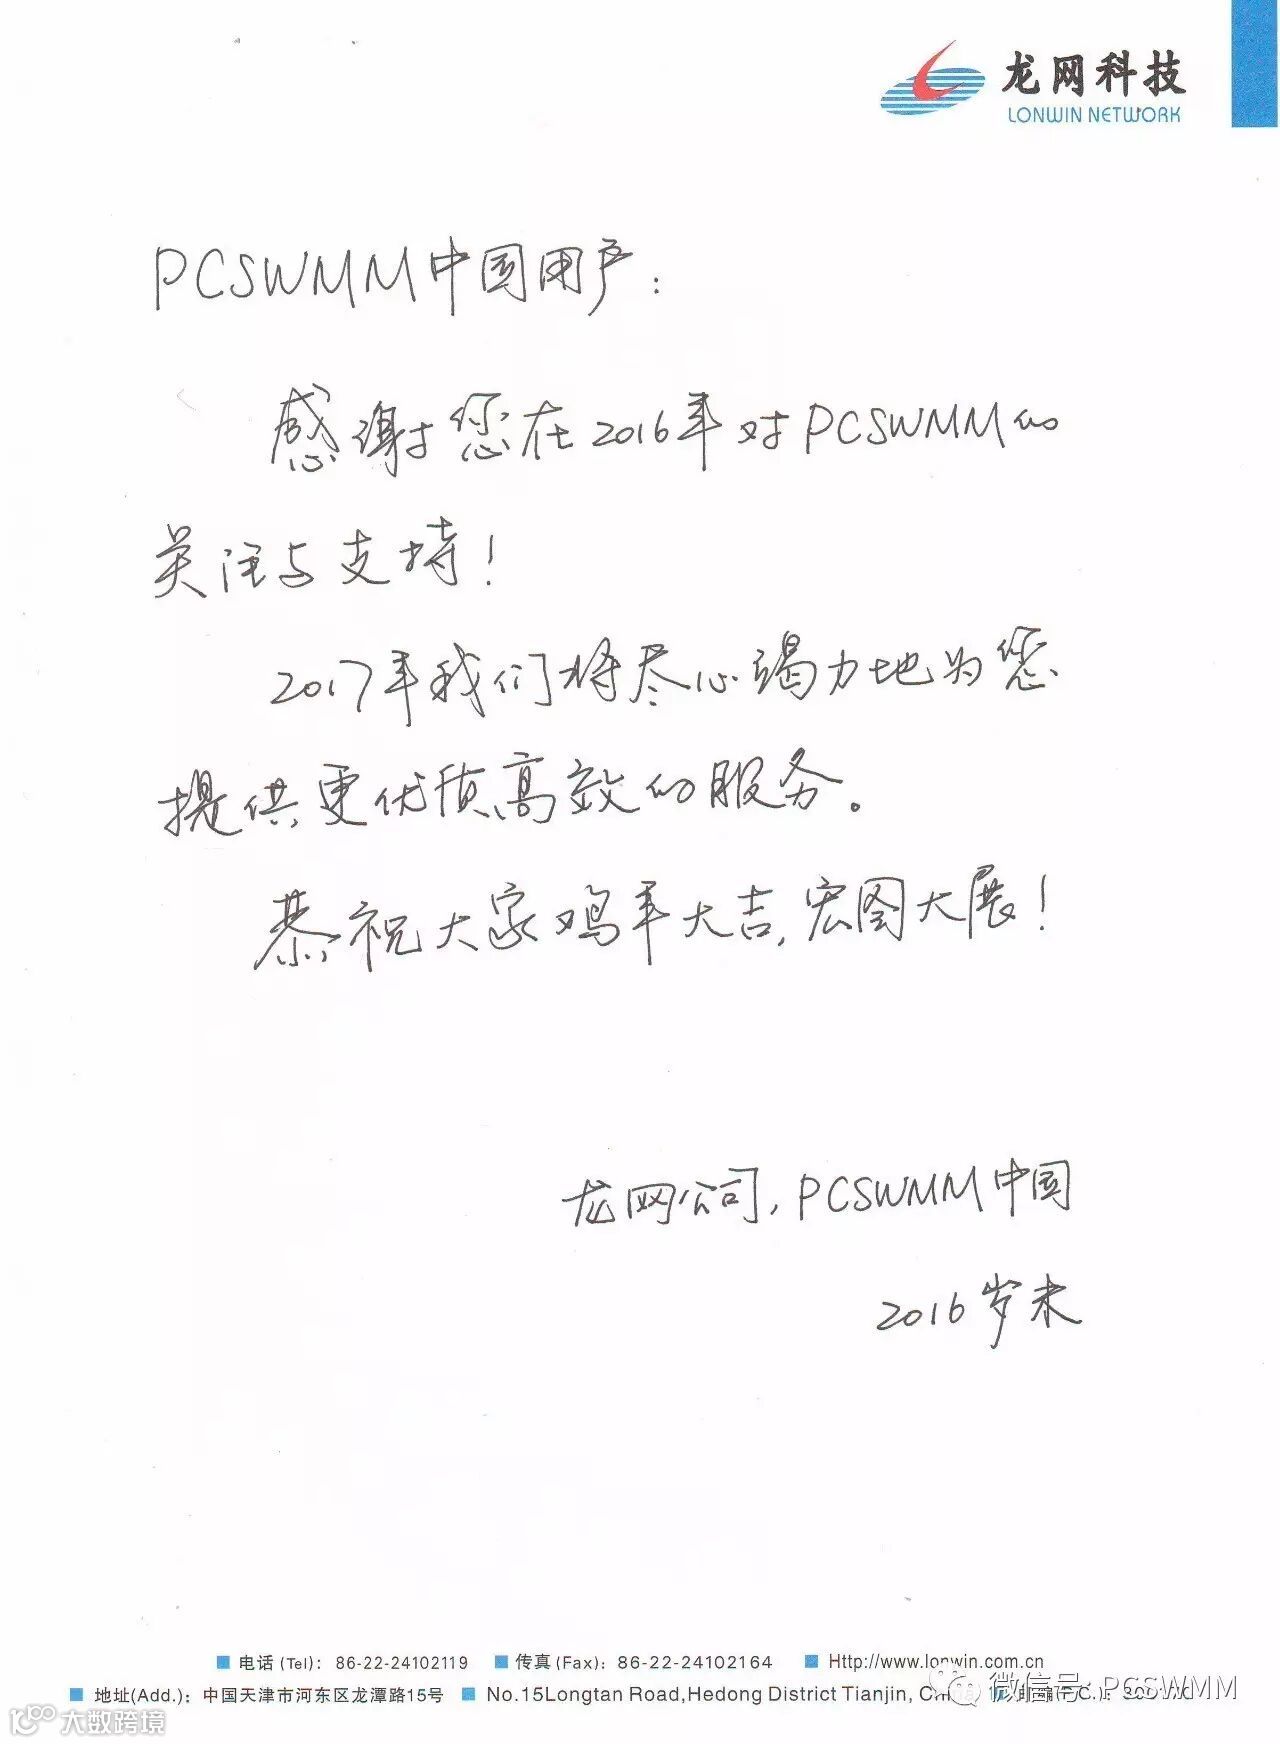 龙网科技
LONWIN NETWORK
PCSWMM中国用户：
感谢您在2016年对PCSWMM的
关注与支持！
2017年我们将尽心竭力地为您
提供更优质高效的服务。
恭祝大家鸡年大吉，宏图大展！
龙网公司，PCSWMM中国
2016岁末
电话(Tel)：86-22-24102119 传真(Fax)：86-22-24102164 Http://www.lonwin.com.cn
地址(Add.)：中国天津市河东区龙潭路15号 No.15Longtan Road,Hedong District Tianjin,
微信号: PCSWMM
大数跨境